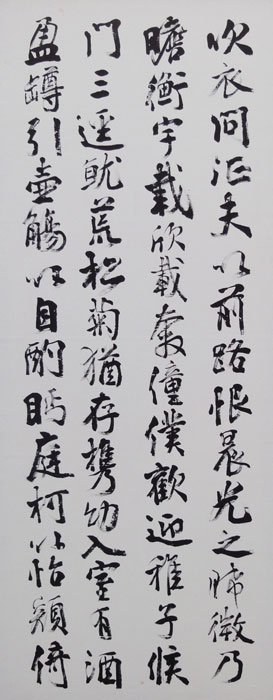 吹衣问征夫以前路恨晨光之晞微乃
瞻衡宇載欣載奔僮僕歡迎稚子候
門三逕就荒松菊猶存携幼入室有酒
盈罇引壺觴以自酌眄庭柯以怡顏倚